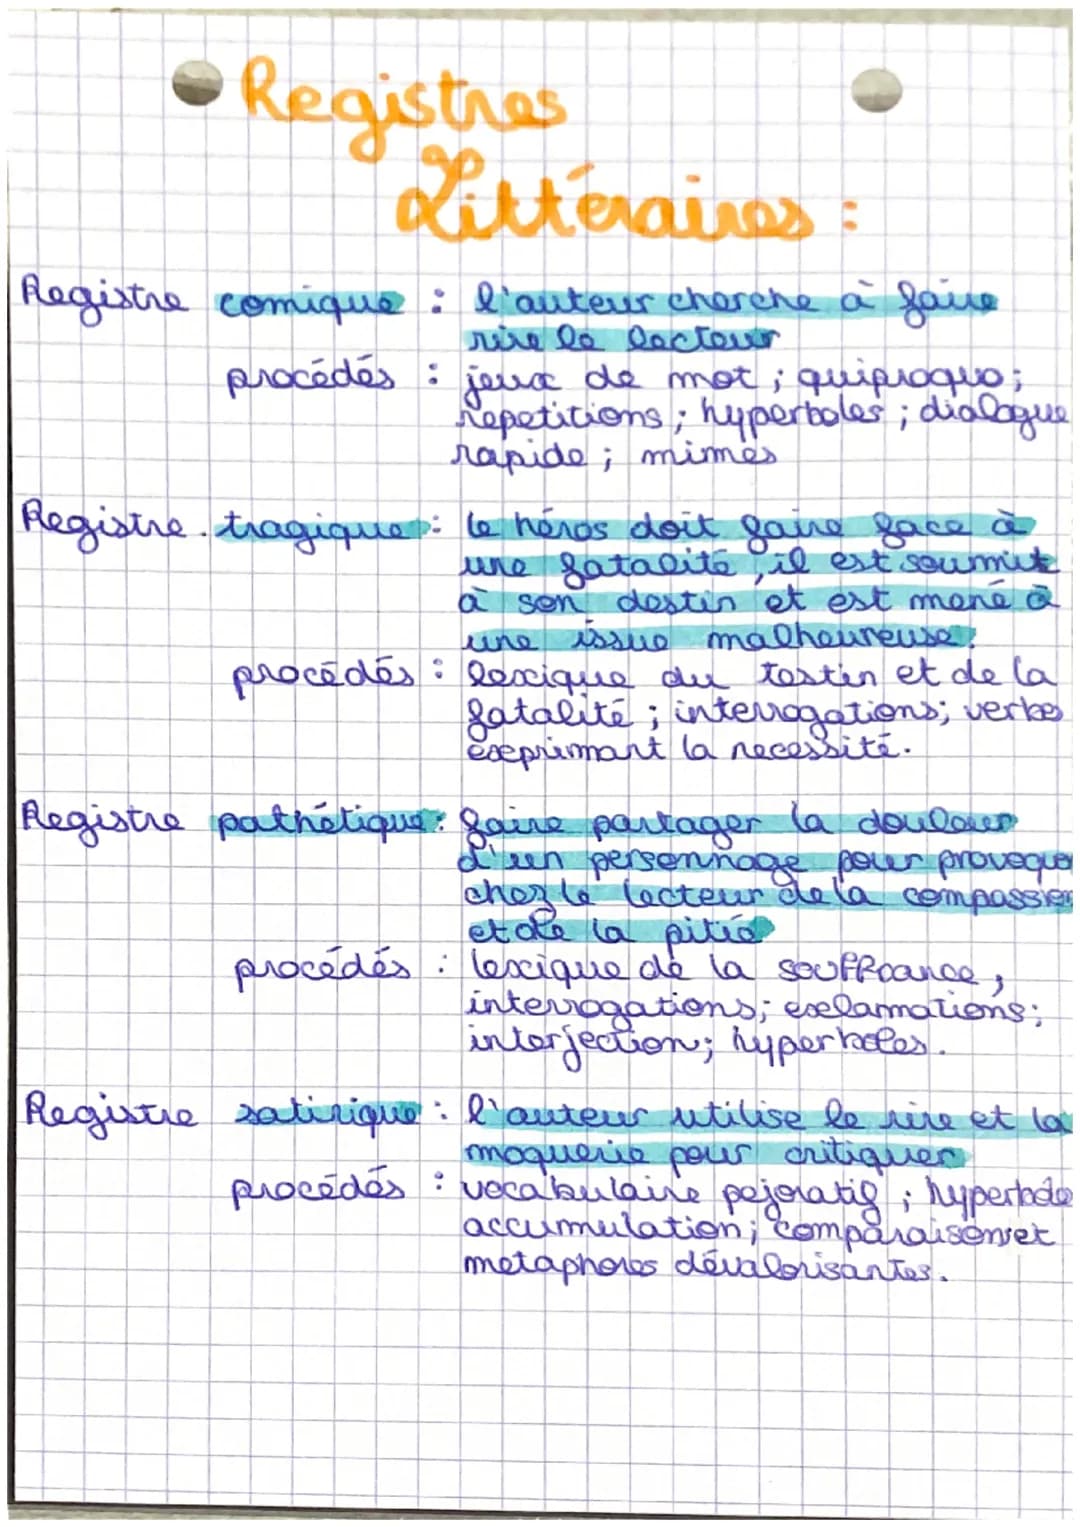 Registres
Littéraires :
Registre comique : l'auteur cherche à faire
rire le lecteur
procédés : jeux de mot ; quiproquo ;
repetitions ; hyperboles ; dialogue
rapide ; mimes
Registre tragique : le héros doit faire face à
une fatalité, il est soumit
à son destin et est mené à
une issue malheureuse.
procédés : lexique du testin et de la
fatalité ; interrogations ; verbes
exprimant la necessité.
Registre pathétique : faire partager la douleur
d'un personnage pour provoque
chez le lecteur de la compassion
et de la pitié
procédés : lexique de la souffrance,
interrogations ; exclamations ;
interjection ; hyperboles.
Registre satirique : l'auteur utilise le rire et la
moquerie pour critiquer
procédés : vocabulaire pejoratif ; hyperbole
accumulation ; comparaison et
metaphores dévalorisantes.